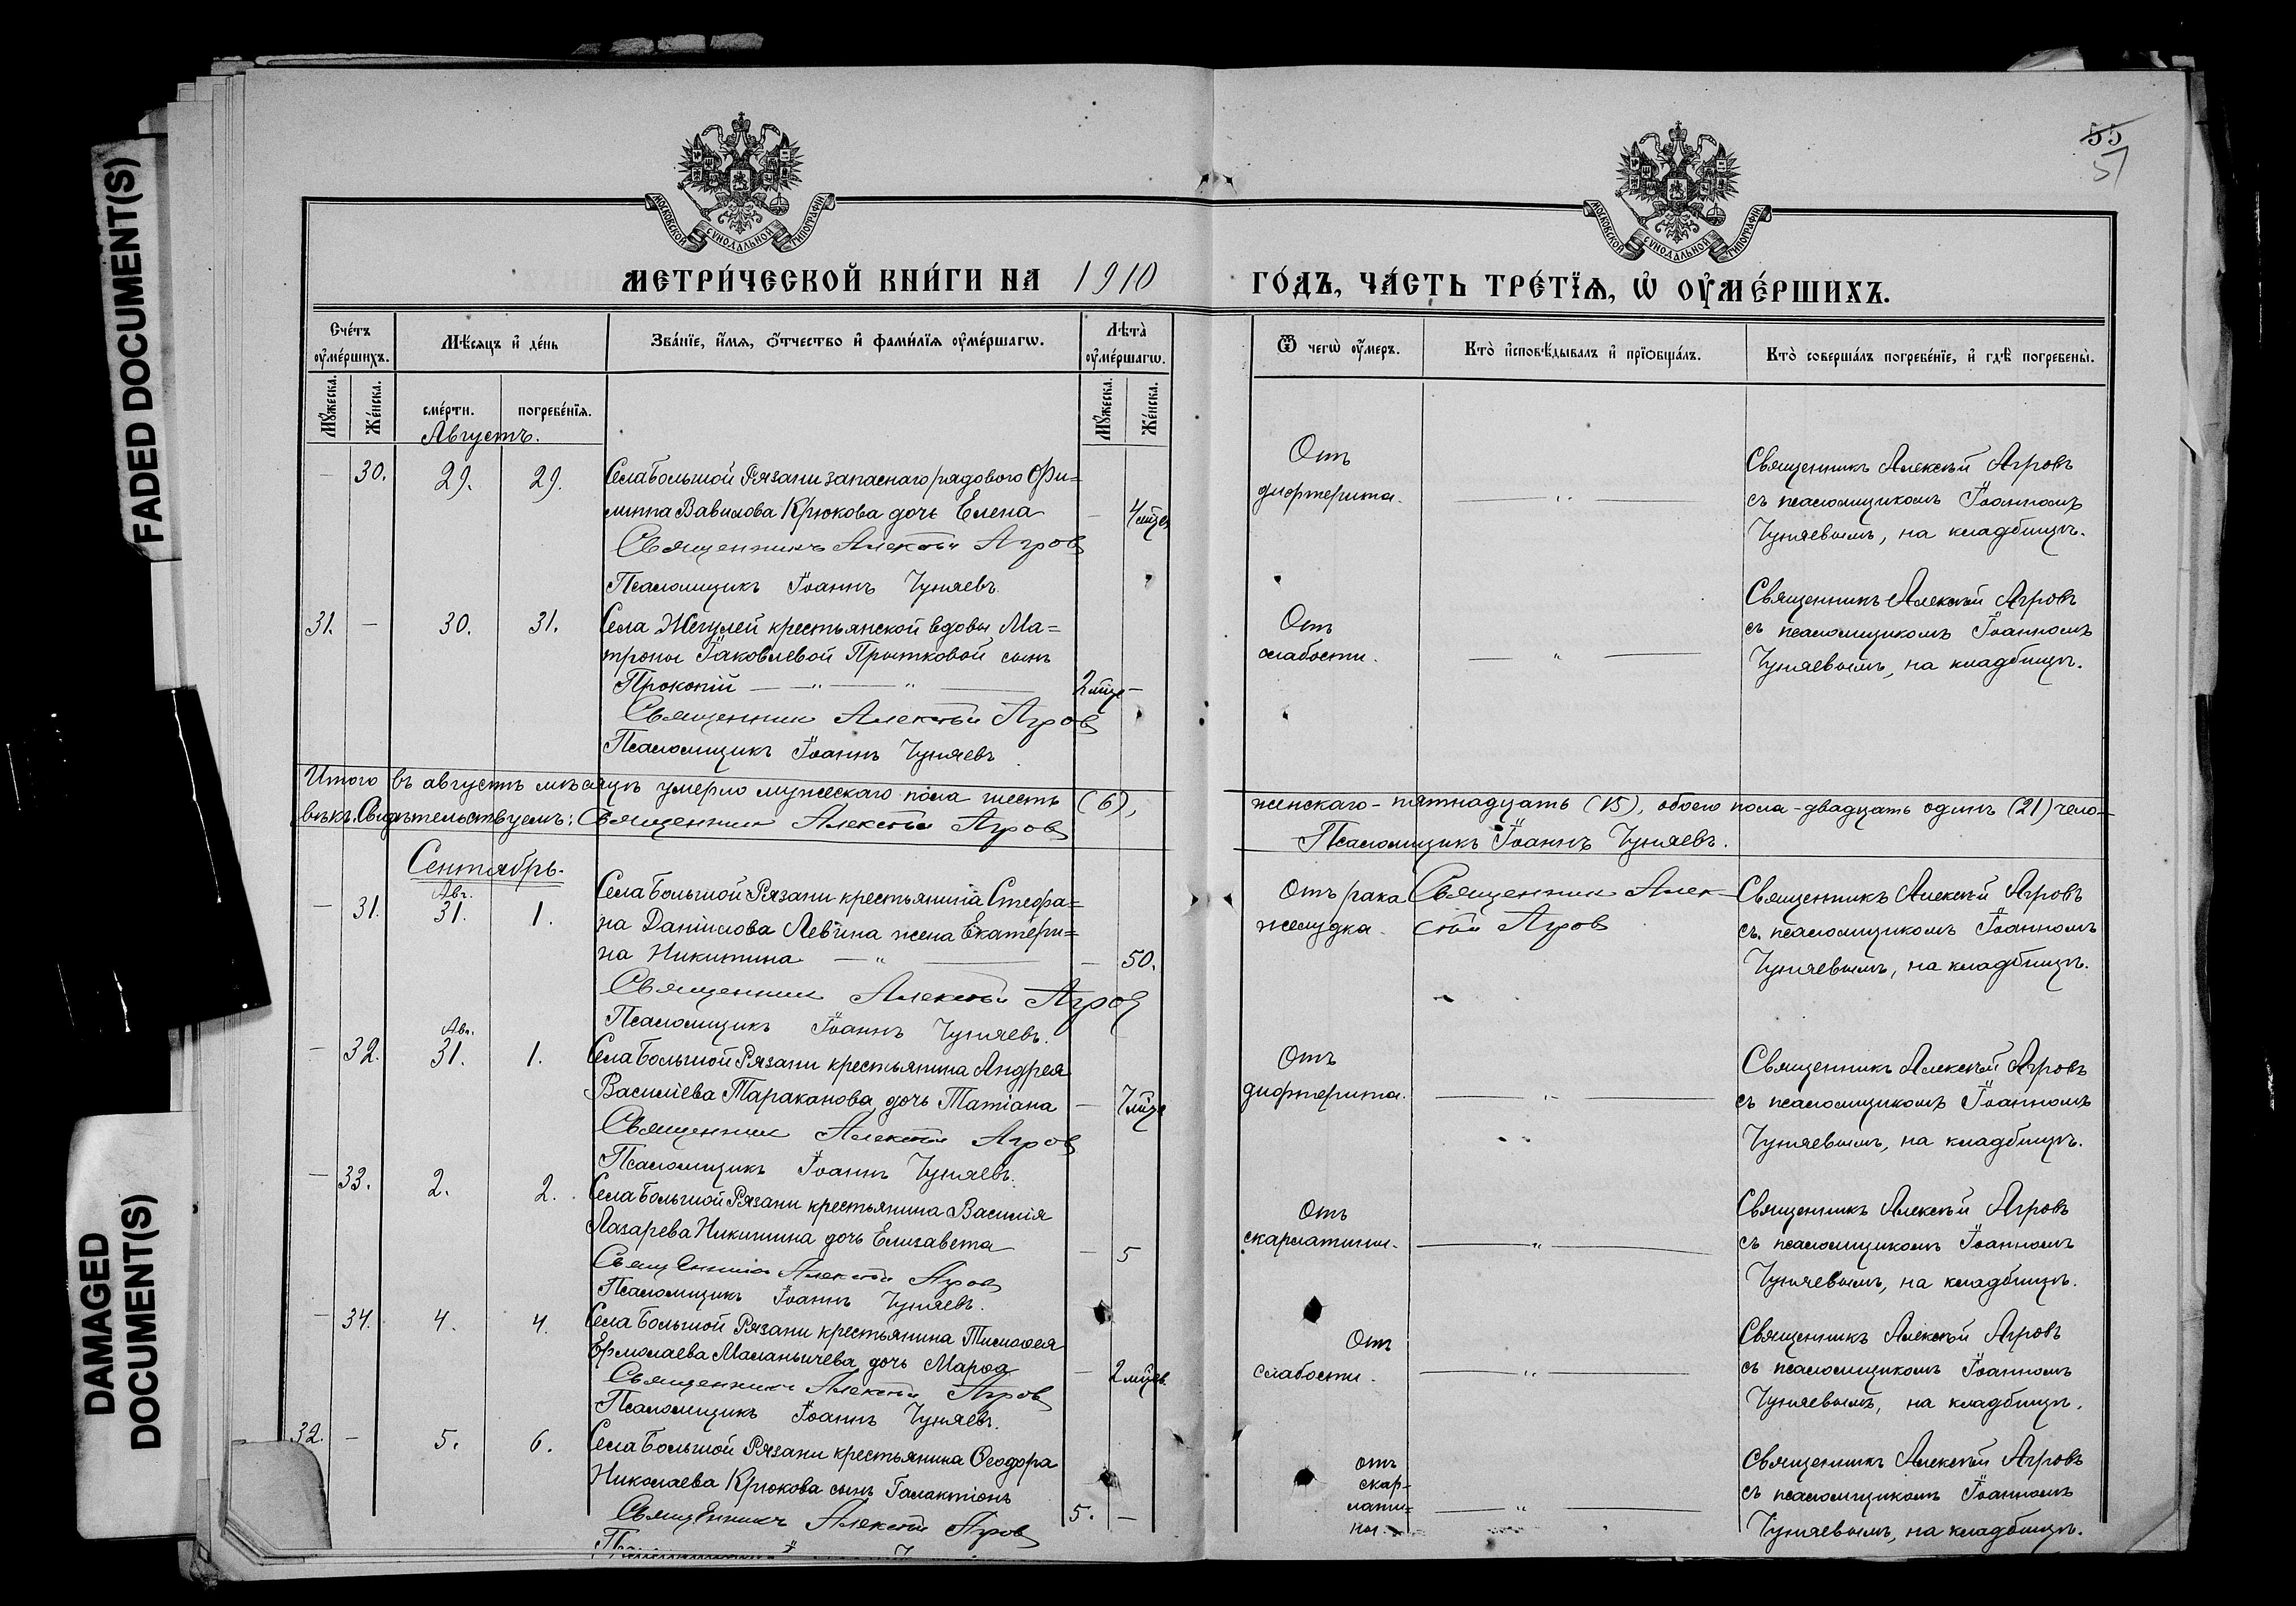 FADED DOCUMENT(S)
DAMAGED
DOCUMENT(S)
55
57
МОСКОВСКОЙ СѴНОДАЛЬНОЙ ТИПОГРАФІИ
МОСКОВСКОЙ СѴНОДАЛЬНОЙ ТИПОГРАФІИ
МЕТРИ́ЧЕСКОЙ КНИ́ГИ НА 1910 ГО́ДЪ, ЧА́СТЬ ТРЕ́ТЇѦ, Ѡ҆ ОУ҆МЕ́РШИХЪ.
Сче́тъ оу҆ме́ршихъ.
Мѣ́сяцъ и҆ де́нь
Зва́нїе, и҆́мѧ, ѻ҆́тчество и҆ фами́лїѧ оу҆ме́ршагѡ.
Лѣ́та̀ оу҆ме́ршагѡ.
Ѿ чегѡ̀ оу҆́меръ.
Кто̀ и҆сповѣ́дывалъ и҆ прїѻбща́лъ.
Кто̀ соверша́лъ погребе́нїе, и҆ гдѣ̀ погребены̀.
Мꙋ́жеска.
Же́нска.
сме́рти.
погребе́нїѧ.
Мꙋ́жеска.
Же́нска.
Августъ.
— 30. 29. 29. Села Большой Рязани запаснаго рядового Фи=
липпа Вавилова Крюкова дочь Елена — 4 мѣс
Священникъ Алексѣй Агров
Псаломщикъ Іоаннъ Чуняевъ.
Отъ
дифтерита. — „ —
Священникъ Алексѣй Агровъ
съ псаломщикомъ Іоанномъ
Чуняевымъ, на кладбищѣ.
31. — 30. 31. Села Жегулей крестьянской вдовы Ма=
троны Іаковлевой Прытковой сынъ
Прокопій — „ — „ — 2 мѣс —
Священник Алексѣй Агров
Псаломщикъ Іоаннъ Чуняевъ
Отъ
слабости. — „ —
Священникъ Алексѣй Агровъ
съ псаломщикомъ Іоанномъ
Чуняевымъ, на кладбищѣ.
Итого въ августѣ мѣсяцѣ умерло мужескаго пола шесть (6), женскаго - пятнадцать (15), обоего пола - двадцать одинъ (21) чело=
вѣкъ. Свидѣтельствуемъ: Священник Алексѣй Агров Псаломщикъ Іоаннъ Чуняевъ.
Сентябрь.
Авг.
— 31. 31. 1. Села Большой Рязани крестьянина Стефа=
на Даніилова Левина жена Екатери=
на Никитина — „ — — 50.
Священник Алексѣй Агров
Псаломщикъ Іоаннъ Чуняевъ.
Отъ рака
желудка.
Священник Алек-
сѣй Агров
Священникъ Алексѣй Агровъ
съ псаломщикомъ Іоанномъ
Чуняевымъ, на кладбищѣ.
Авг.
— 32. 31. 1. Села Большой Рязани крестьянина Андрея
Василіева Тараканова дочь Татіана — 7 мѣс
Священник Алексѣй Агров
Псаломщикъ Іоаннъ Чуняевъ.
Отъ
дифтерита. — „ —
Священникъ Алексѣй Агровъ
съ псаломщикомъ Іоанномъ
Чуняевымъ, на кладбищѣ.
— 33. 2. 2. Села Большой Рязани крестьянина Василія
Лазарева Никитина дочь Елизавета — 5
Священник Алексѣй Агров
Псаломщикъ Іоаннъ Чуняевъ.
Отъ
скарлатины. — „ —
Священникъ Алексѣй Агровъ
съ псаломщикомъ Іоанномъ
Чуняевымъ, на кладбищѣ.
— 34. 4. 4. Села Большой Рязани крестьянина Тимоѳея
Ермолаева Маланьичева дочь Марѳа — 2 мѣсев.
Священникъ Алексѣй Агров
Псаломщикъ Іоаннъ Чуняевъ.
Отъ
слабости. — „ —
Священникъ Алексѣй Агровъ
съ псаломщикомъ Іоанномъ
Чуняевымъ, на кладбищѣ.
32. — 5. 6. Села Большой Рязани крестьянина Ѳеодора
Николаева Крюкова сынъ Галактіонъ 5. —
Священникъ Алексѣй Агров
отъ
скар-
лати=
ны. — „ —
Священникъ Алексѣй Агровъ
съ псаломщикомъ Іоанномъ
Чуняевымъ, на кладбищѣ.